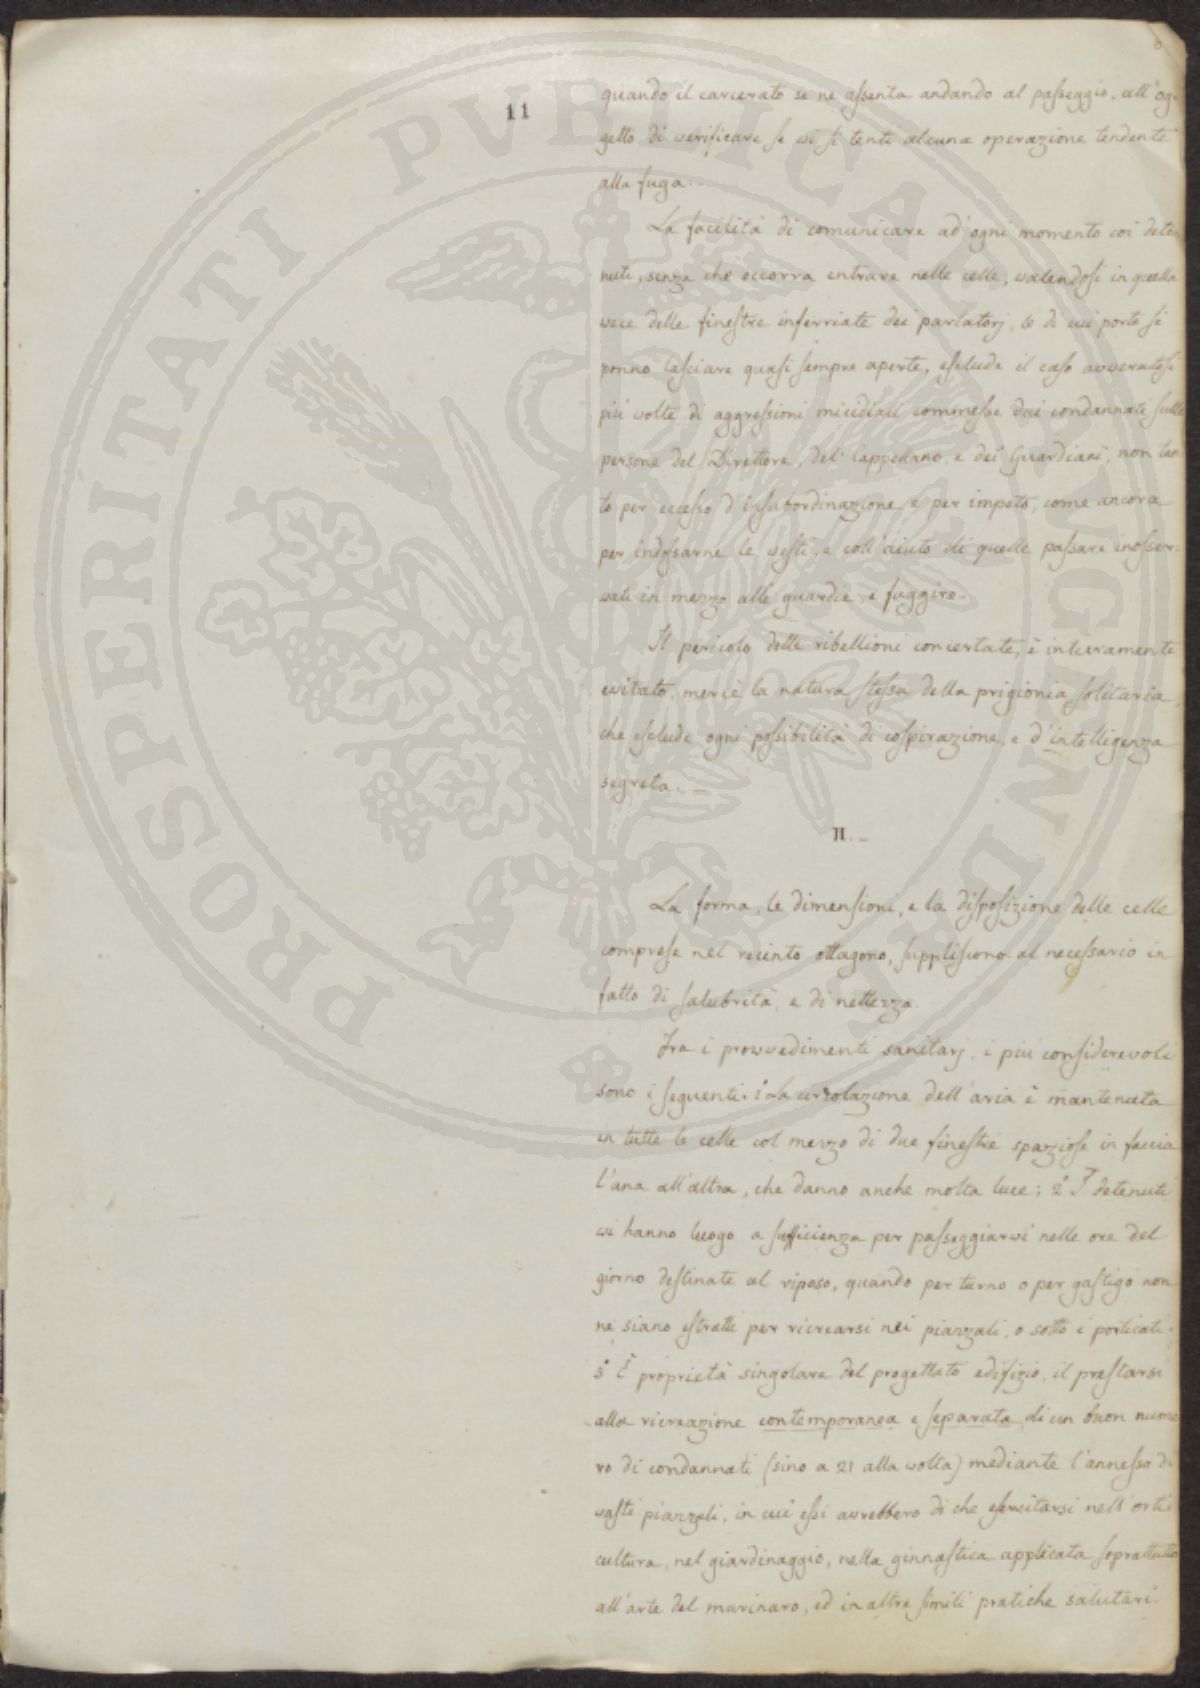 11
quando il carcerato se ne assenta andando al passeggio, all'og-
getto di verificare se vi si tenti alcuna operazione tendente
alla fuga. -
La facilità di comunicare ad ogni momento coi dete-
nuti, senza che occorra entrare nelle celle, valendosi in quella
vece delle finestre inferriate dei parlatorj, le di cui porte si
ponno lasciare quasi sempre aperte, esclude il caso avveratosi
più volte di aggressioni micidiali commesse dai condannati sulle
persone del Direttore, del Cappellano, e dei Guardiani, non tan-
to per eccesso d'insubordinazione, e per impeto, come ancora
per indossarne le vesti, e coll'aiuto di quelle passare inosser-
vati in mezzo alle guardie e fuggire. -
Il pericolo delle ribellioni concertate, è interamente
evitato, mercè la natura stessa della prigionia solitaria,
che esclude ogni possibilità di cospirazione, e d'intelligenza
segreta. -
II. -
La forma, le dimensioni, e la disposizione delle celle
comprese nel recinto ottagono, suppliscono al necessario in
fatto di salubrità, e di nettezza.
Fra i provvedimenti sanitarj, i più considerevoli
sono i seguenti: 1° La circolazione dell'aria è mantenuta
in tutte le celle col mezzo di due finestre spaziose in faccia
l'una all'altra, che danno anche molta luce; 2° I detenuti
vi hanno luogo a sufficienza per passeggiarvi nelle ore del
giorno destinate al riposo, quando per turno o per gastigo non
ne siano estratti per ricrearsi nei piazzali, o sotto i porticati.
3° È proprietà singolare del progettato edifizio, il prestarsi
alla ricreazione contemporanea e separata di un buon nume-
ro di condannati (sino a 21 alla volta) mediante l'annesso di
vasti piazzali, in cui essi avrebbero di che esercitarsi nell'orti-
cultura, nel giardinaggio, nella ginnastica applicata soprattutto
all'arte del marinaro, ed in altre simili pratiche salutari.
PROSPERITATI PVBLICAE AVGENDAE